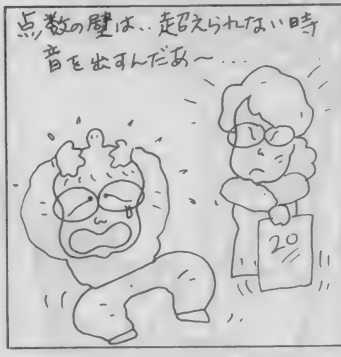 点数の壁は‥超えられない時
音を出すんだあ〜…
20